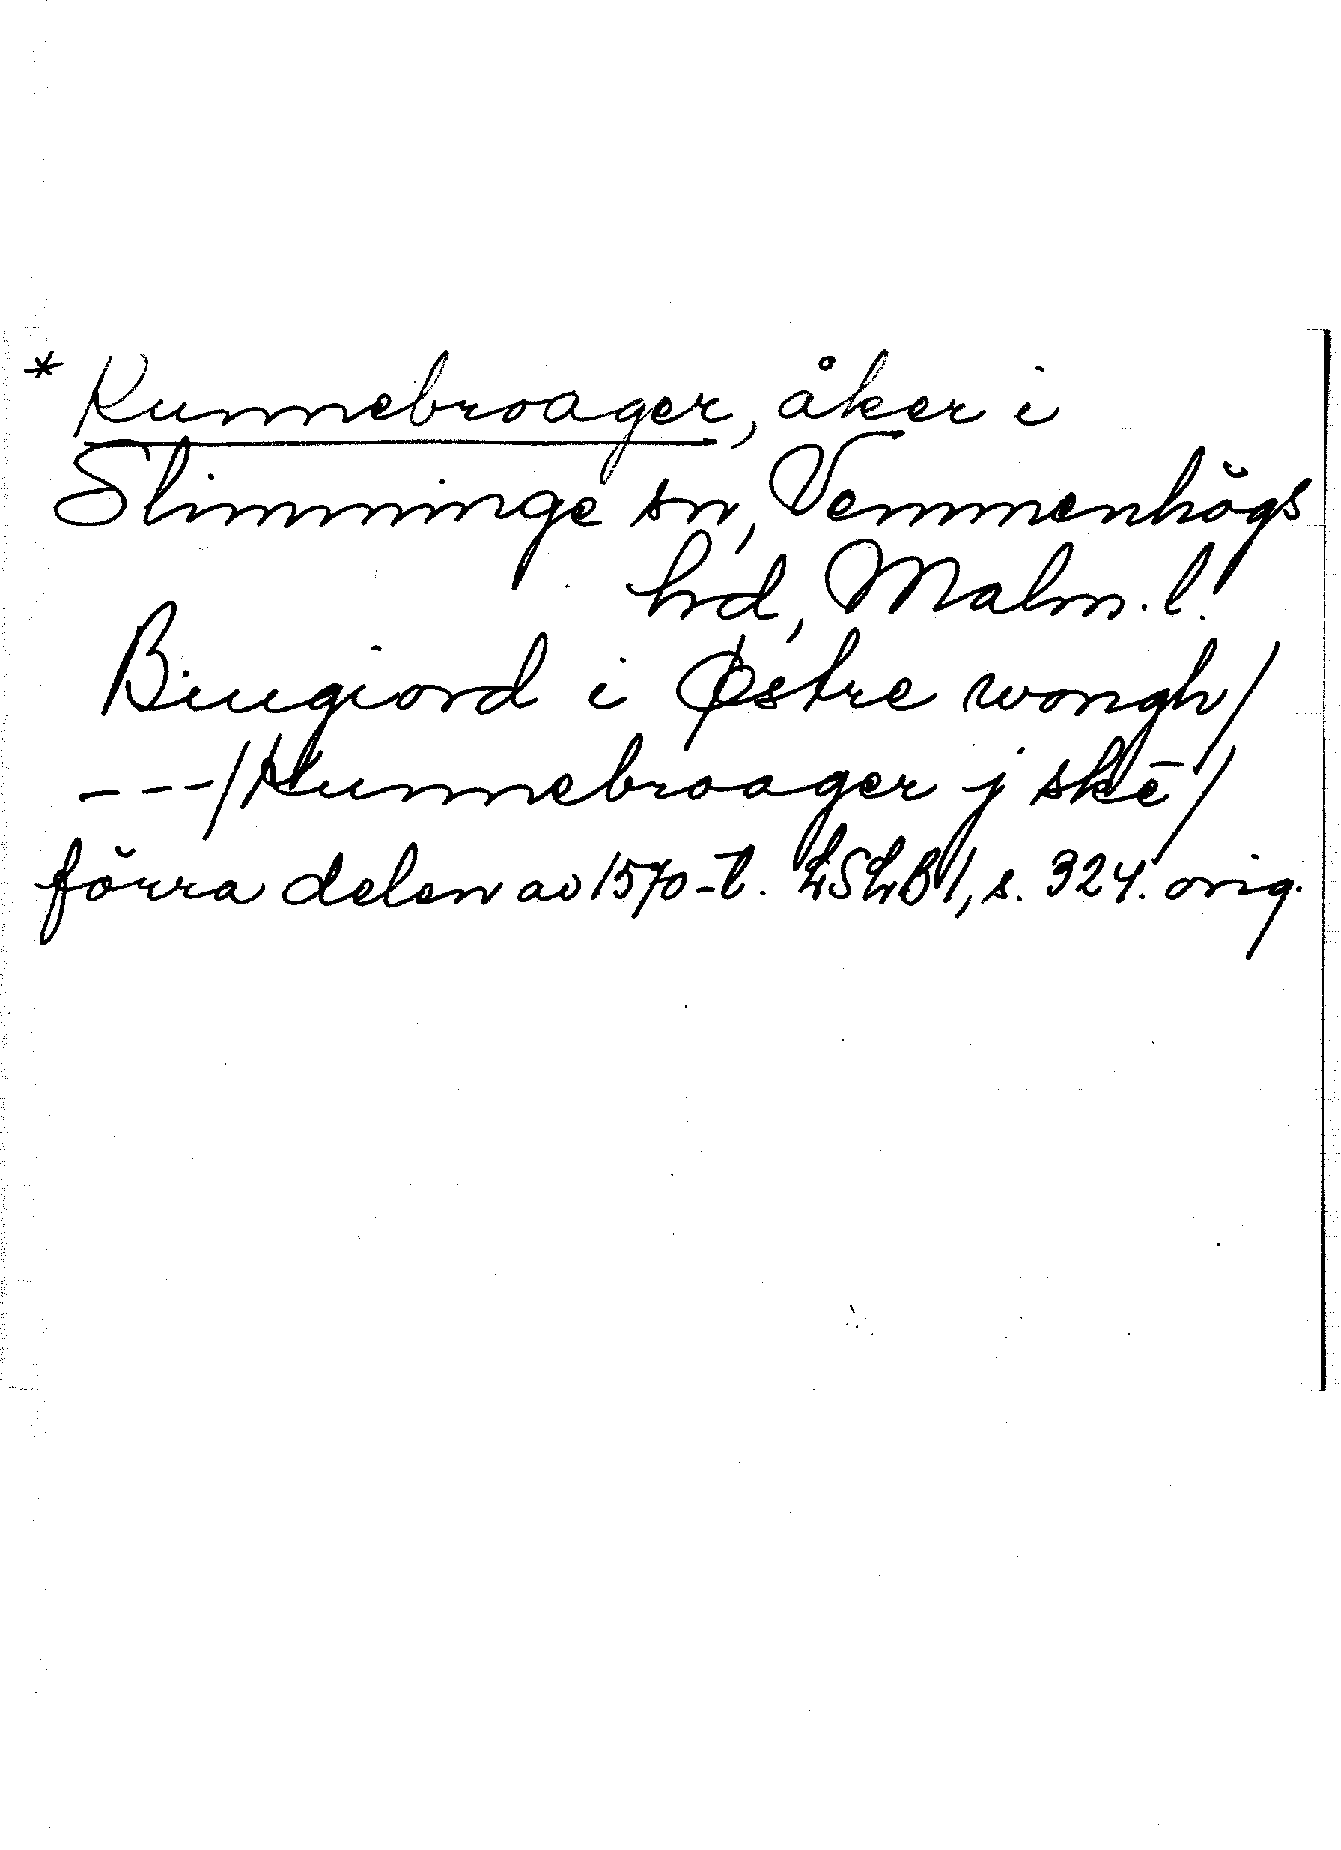 * Kunnebroager, åker i
Slimminge sn, Vemmenhögs
hd, Malm. l.
Biugiord i Østre wongh/
---/Kunnebroager j skē/
förra delen av 1570-t. LSLB 1, s. 324. orig.